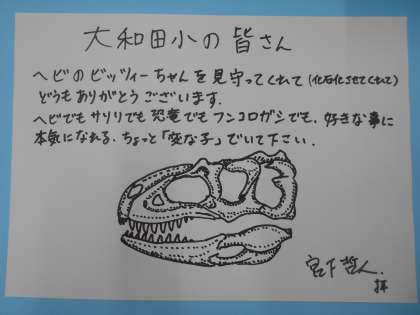 大和田小の皆さん
ヘビのビッツィーちゃんを見守ってくれて(化石化させてくれて)
どうもありがとうございます.
ヘビでもサソリでも恐竜でもフンコロガシでも、好きな事に
本気になれる、ちょっと「変な子」でいて下さい.
宮下哲人.
拝